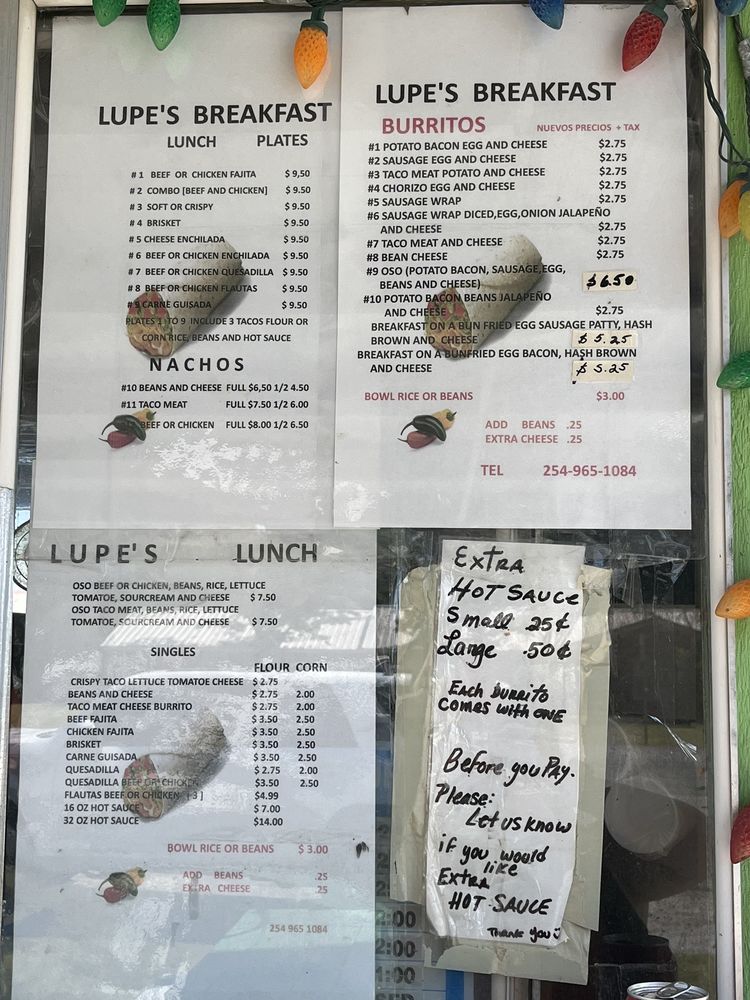 LUPE'S BREAKFAST
LUNCH PLATES
# 1 BEEF OR CHICKEN FAJITA $ 9,50
# 2 COMBO [BEEF AND CHICKEN] $ 9.50
# 3 SOFT OR CRISPY $ 9.50
# 4 BRISKET $ 9.50
# 5 CHEESE ENCHILADA $ 9.50
# 6 BEEF OR CHICKEN ENCHILADA $ 9.50
# 7 BEEF OR CHICKEN QUESADILLA $ 9.50
# 8 BEEF OR CHICKEN FLAUTAS $ 9.50
# 9 CARNE GUISADA $ 9.50
PLATES 1 TO 9 INCLUDE 3 TACOS FLOUR OR
CORN RICE, BEANS AND HOT SAUCE
NACHOS
#10 BEANS AND CHEESE FULL $6,50 1/2 4.50
#11 TACO MEAT FULL $7.50 1/2 6.00
BEEF OR CHICKEN FULL $8.00 1/2 6.50
LUPE'S BREAKFAST
BURRITOS NUEVOS PRECIOS + TAX
#1 POTATO BACON EGG AND CHEESE $2.75
#2 SAUSAGE EGG AND CHEESE $2.75
#3 TACO MEAT POTATO AND CHEESE $2.75
#4 CHORIZO EGG AND CHEESE $2.75
#5 SAUSAGE WRAP $2.75
#6 SAUSAGE WRAP DICED,EGG,ONION JALAPEÑO
AND CHEESE $2.75
#7 TACO MEAT AND CHEESE $2.75
#8 BEAN CHEESE $2.75
#9 OSO (POTATO BACON, SAUSAGE,EGG,
BEANS AND CHEESE) $6.50
#10 POTATO BACON BEANS JALAPEÑO
AND CHEESE $2.75
BREAKFAST ON A BUN FRIED EGG SAUSAGE PATTY, HASH
BROWN AND CHEESE $ 5.25
BREAKFAST ON A BUNFRIED EGG BACON, HASH BROWN
AND CHEESE $ 5.25
BOWL RICE OR BEANS $3.00
ADD BEANS .25
EXTRA CHEESE .25
TEL 254-965-1084
LUPE'S LUNCH
OSO BEEF OR CHICKEN, BEANS, RICE, LETTUCE
TOMATOE, SOURCREAM AND CHEESE $ 7.50
OSO TACO MEAT, BEANS, RICE, LETTUCE
TOMATOE, SOURCREAM AND CHEESE $ 7.50
SINGLES
FLOUR CORN
CRISPY TACO LETTUCE TOMATOE CHEESE $ 2.75
BEANS AND CHEESE $ 2.75 2.00
TACO MEAT CHEESE BURRITO $ 2.75 2.00
BEEF FAJITA $ 3.50 2.50
CHICKEN FAJITA $ 3.50 2.50
BRISKET $ 3.50 2.50
CARNE GUISADA $ 3.50 2.50
QUESADILLA $ 2.75 2.00
QUESADILLA BEEF OR CHICKEN $3.50 2.50
FLAUTAS BEEF OR CHICKEN [ 3 ] $4.99
16 OZ HOT SAUCE $ 7.00
32 OZ HOT SAUCE $14.00
BOWL RICE OR BEANS $ 3.00
ADD BEANS .25
EXTRA CHEESE .25
254 965 1084
Extra
HOT SAUCE
Small 25¢
Large .50¢
Each burrito
comes with ONE
Before you Pay.
Please:
Let us know
if you would
like
Extra
HOT SAUCE
Thank you
2:00
2:00
1:00